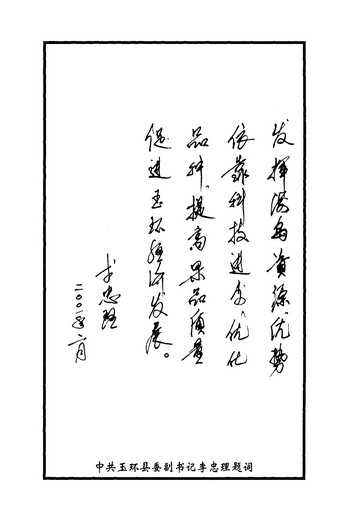 发挥海岛资源优势
依靠科技进步优化
品种提高果品质量
促进玉环经济发展。
李忠理
二〇〇一年 月
中共玉环县委副书记李忠理题词